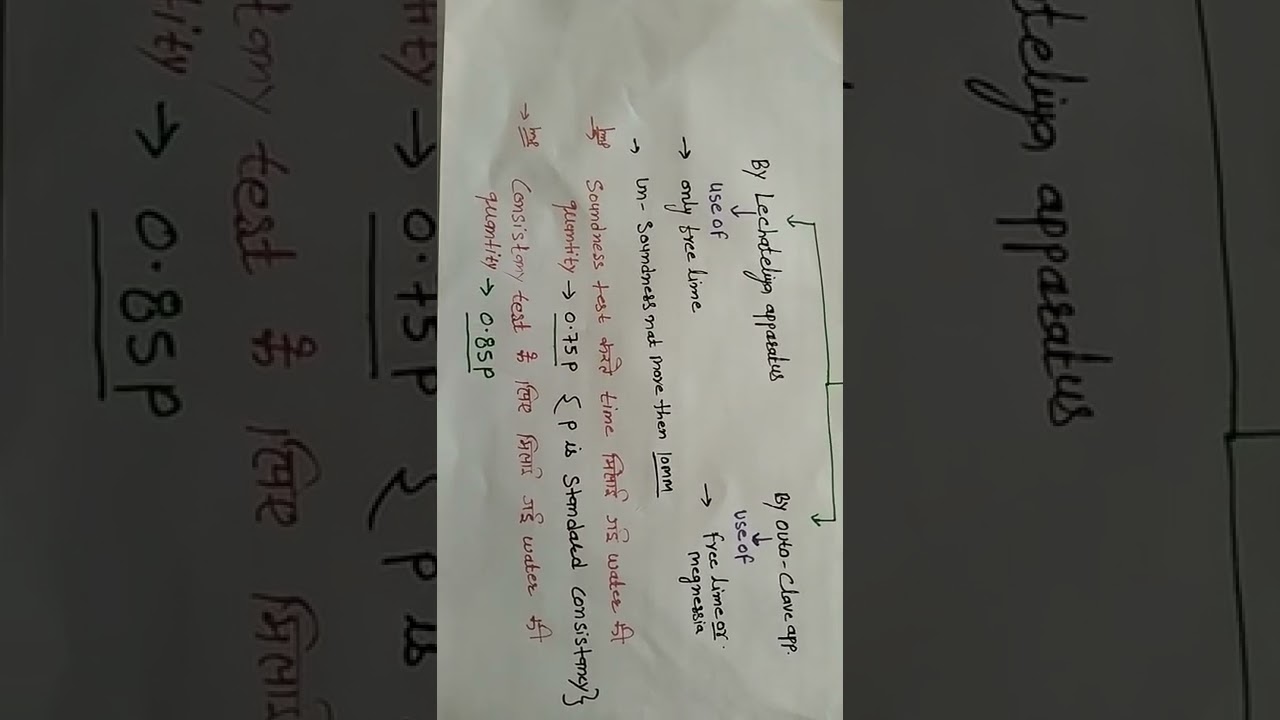 By Lechateliya apparatus
use of
→ only free lime
→ un- soundness not more then 10mm
By outo-clave app.
use of
→ free lime or
megnessia
Imp Soundness test करते time मिलाई गई water की
quantity → 0.75p { p is standard consistancy}
→ Imp Consistany test के लिए मिलाई गई water की
quantity → 0.85p